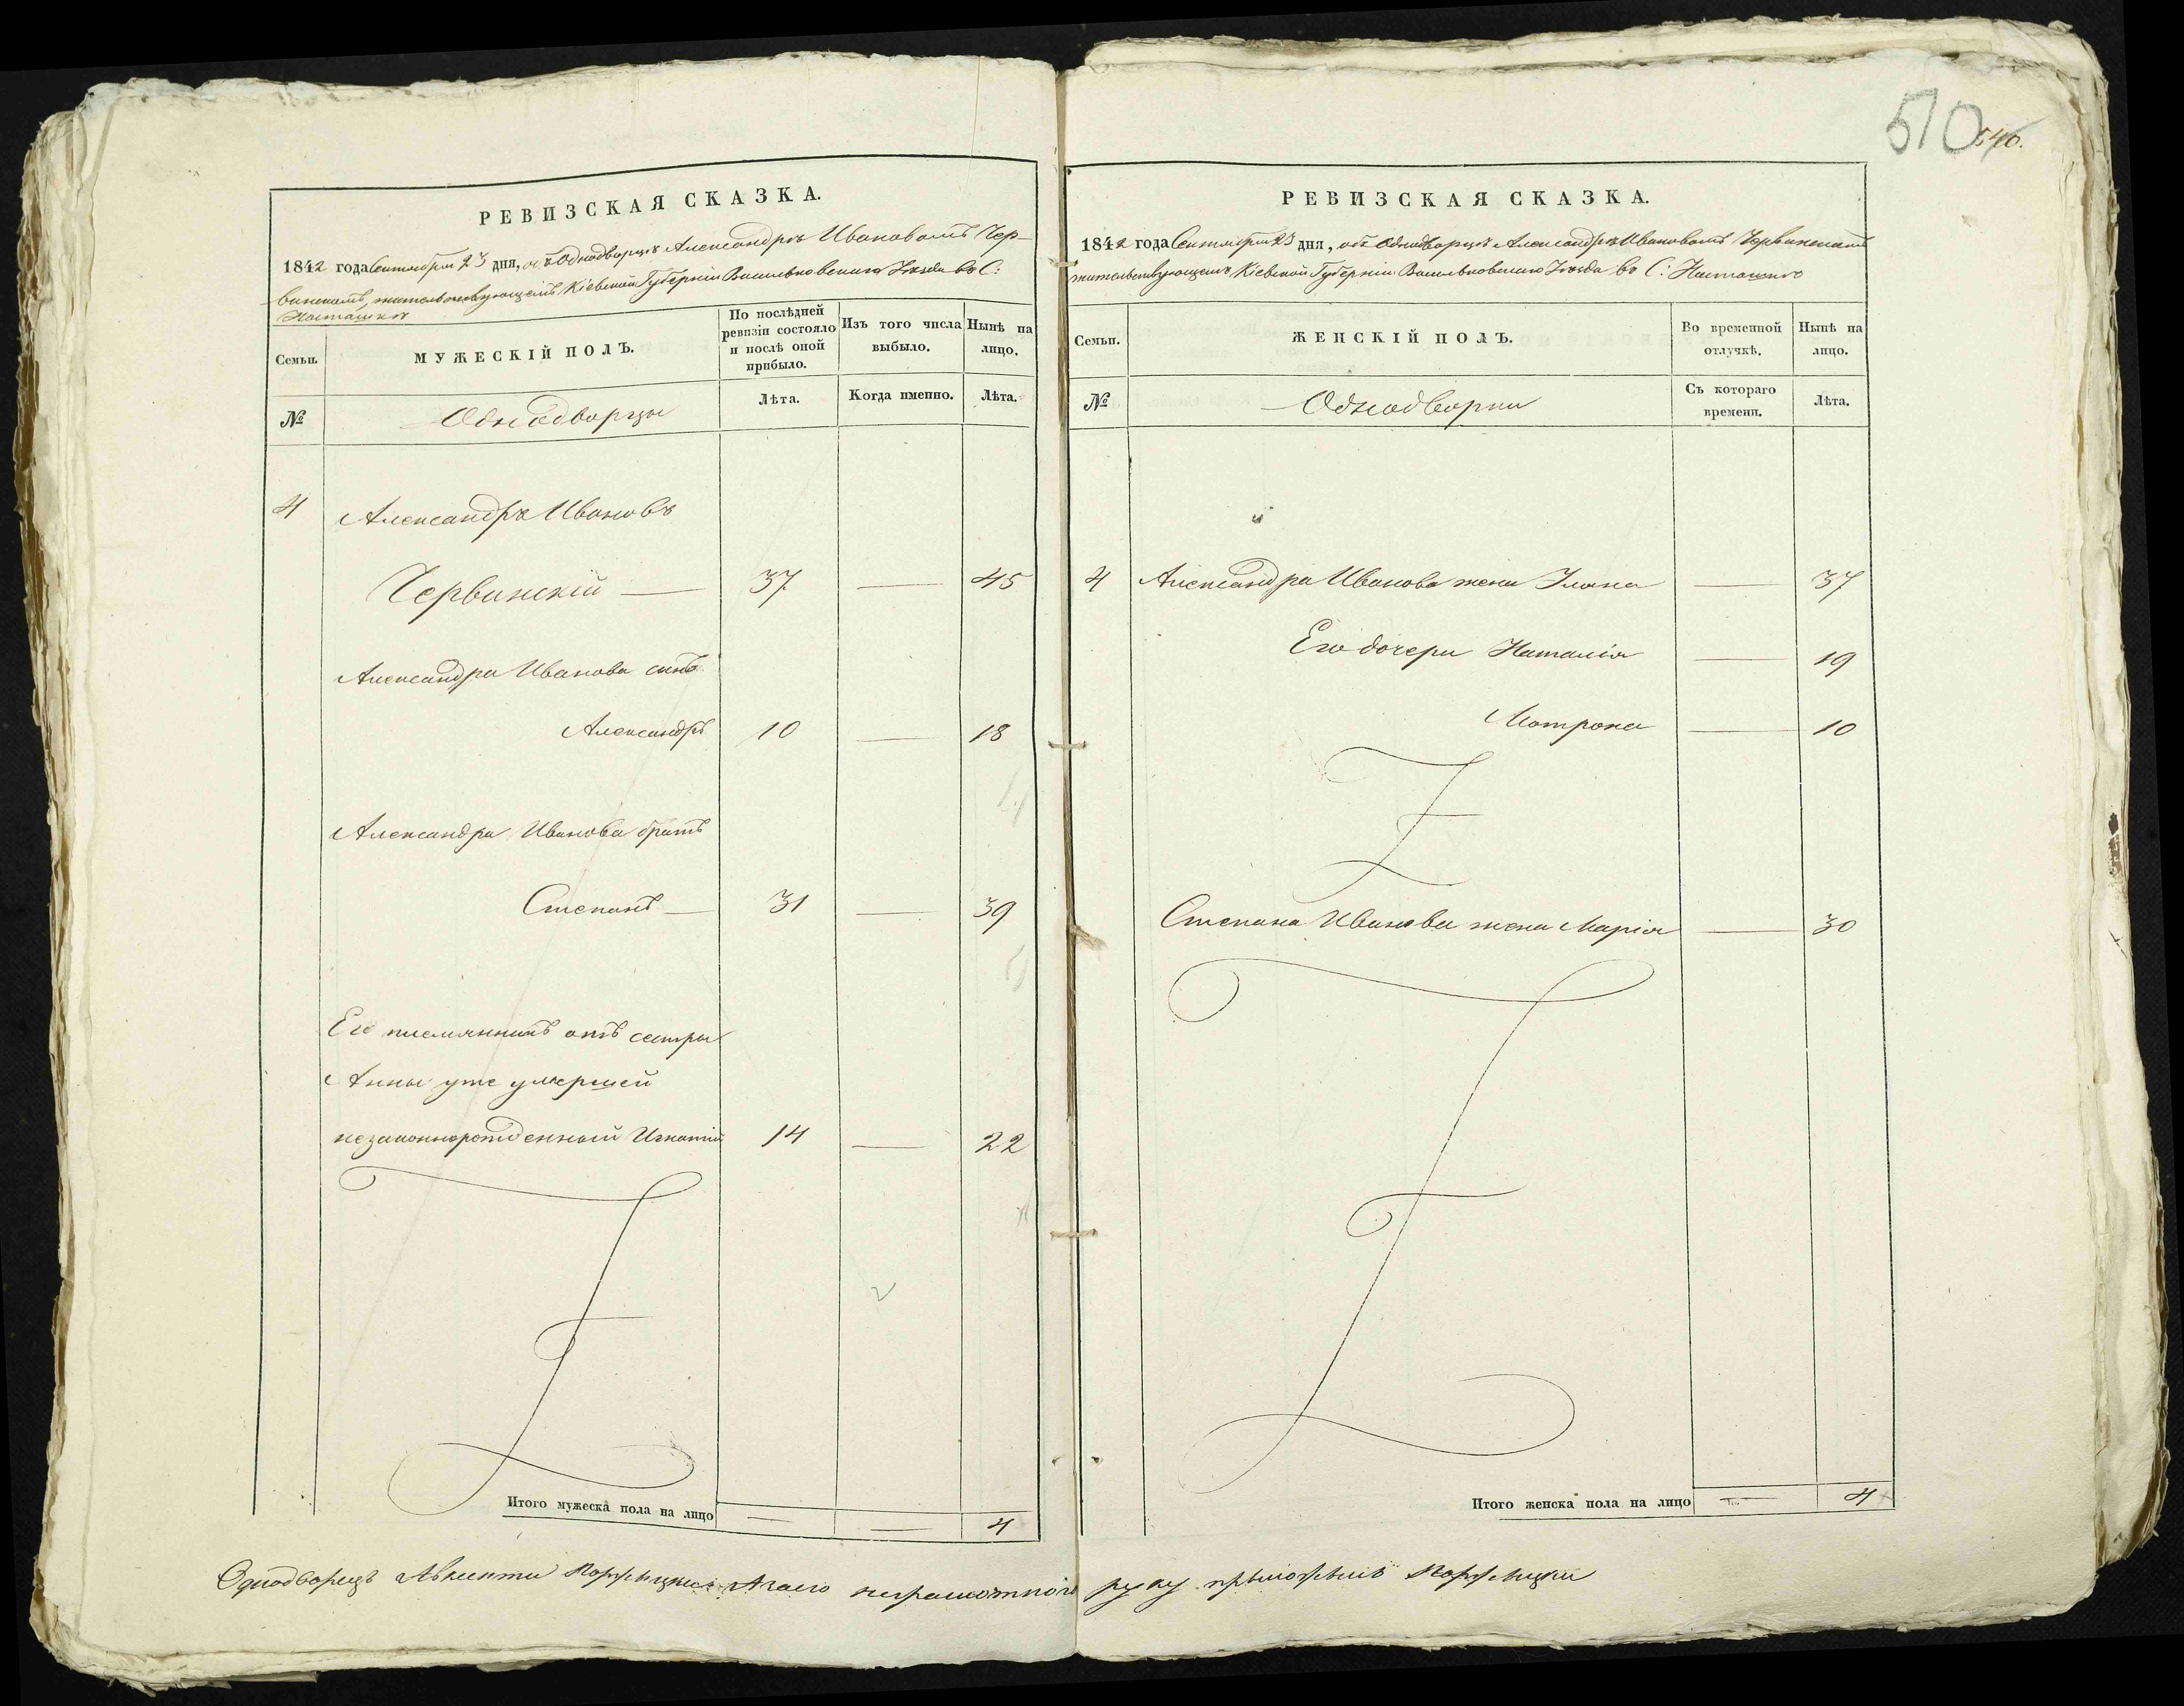 510
540.
РЕВИЗСКАЯ СКАЗКА.
1842 года Сентября 23 дня, объ Однодворцѣ Александрѣ Ивановомъ Чер-
винскомъ, жительствующемъ Кіевской Губерніи Васильковскаго Уѣзда въ С:
Насташкѣ
Семьи.
МУЖЕСКІЙ ПОЛЪ.
По послѣдней
ревизіи состояло
и послѣ оной
прибыло.
Изъ того числа
выбыло.
Нынѣ на
лицо.
№
Однодворцы
Лѣта.
Когда именно.
Лѣта.
4 Александръ Ивановъ
Червинскій — 37 — 45
Александра Иванова сынъ
Александръ 10 — 18
Александра Иванова братъ
Степанъ — 31 — 39
Его племянникъ отъ сестры
Анны уже умершей
незаконнорожденный Игнатій 14 — 22
Итого мужеска пола на лицо — — 4
РЕВИЗСКАЯ СКАЗКА.
1842 года Сентября 23 дня, объ Однодворцѣ Александрѣ Ивановомъ Червинскомъ
жительствующемъ Кіевской Губерніи Васильковскаго Уѣзда въ С:
Семьи.
ЖЕНСКІЙ ПОЛЪ.
Во временной
отлучкѣ.
Нынѣ на
лицо.
№
Однодворки
Съ котораго
времени.
Лѣта.
4 Александра Иванова жена Ульяна — 37
Его дочери Наталія — 19
Мотрона — 10
Степана Иванова жена Марія — 30
Итого женска пола на лицо — 4
Однодворецъ неграмотного руку приложилъ